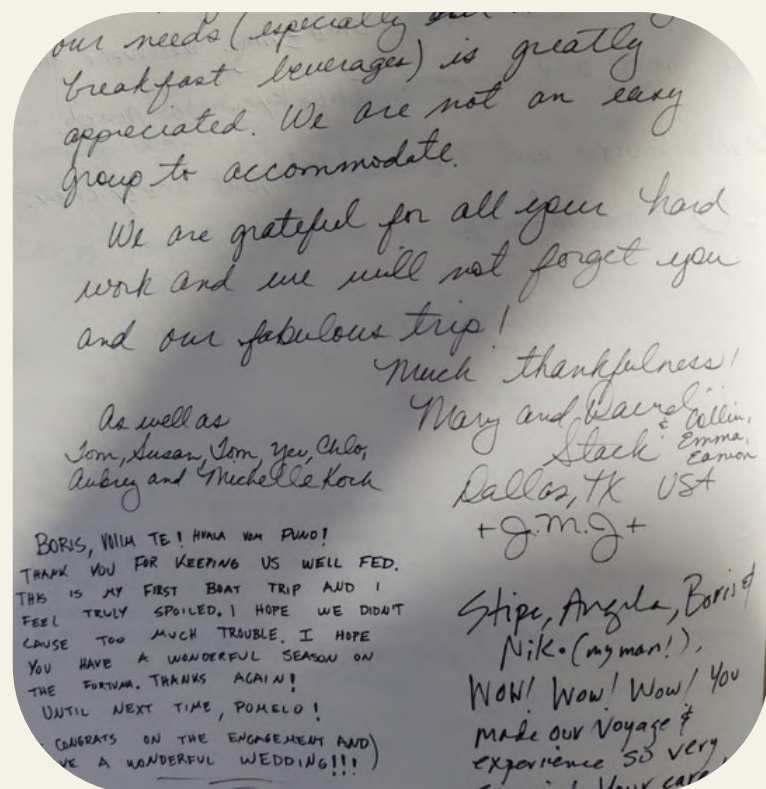 our needs (especially our
breakfast beverages) is greatly
appreciated. We are not an easy
group to accommodate.
We are grateful for all your hard
work and we will not forget you
and our fabulous trip!
Much thankfulness!
Mary and David
& Collin,
Stack Emma,
Eamon
Dallas, TX USA
+ J.M.J +
As well as
Tom, Susan, Tom, Yev, Chlo,
Aubrey and Michelle Koch
BORIS, VOLIM TE! HVALA VAM PUNO!
THANK YOU FOR KEEPING US WELL FED.
THIS IS MY FIRST BOAT TRIP AND I
FEEL TRULY SPOILED. I HOPE WE DIDN'T
CAUSE TOO MUCH TROUBLE. I HOPE
YOU HAVE A WONDERFUL SEASON ON
THE FORTUNA. THANKS AGAIN!
UNTIL NEXT TIME, POMELO!
CONGRATS ON THE ENGAGEMENT AND)
VE A WONDERFUL WEDDING!!!
Stipe, Angela, Boris &
Niko (my man!),
WOW! Wow! Wow! You
made our Voyage &
experience so very
Your care